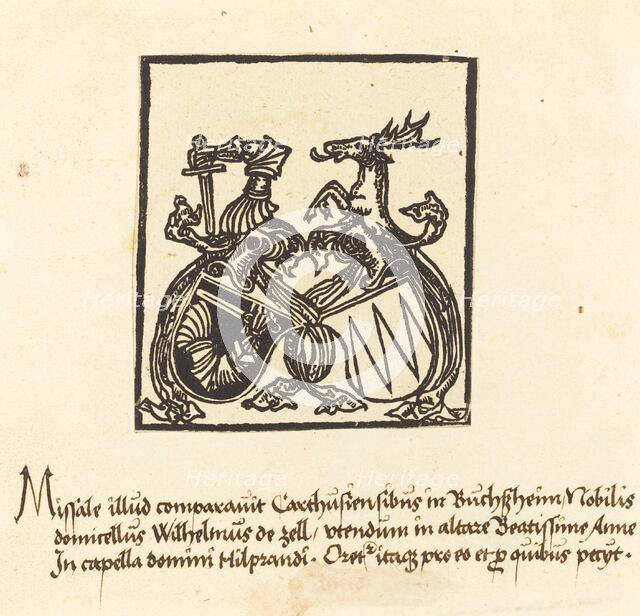 Heritage Heritage
Heritage Heritage
Heritage Heritage
Missale illud comparavit Carthusiensibus in Buchszheim / Nobilis
domicellus Wilhelmus de zell / vtendum in altare Beatissime Anne
In capella domini Hilprandi · Oretr itaqz pro eo et p quibus petyt ·